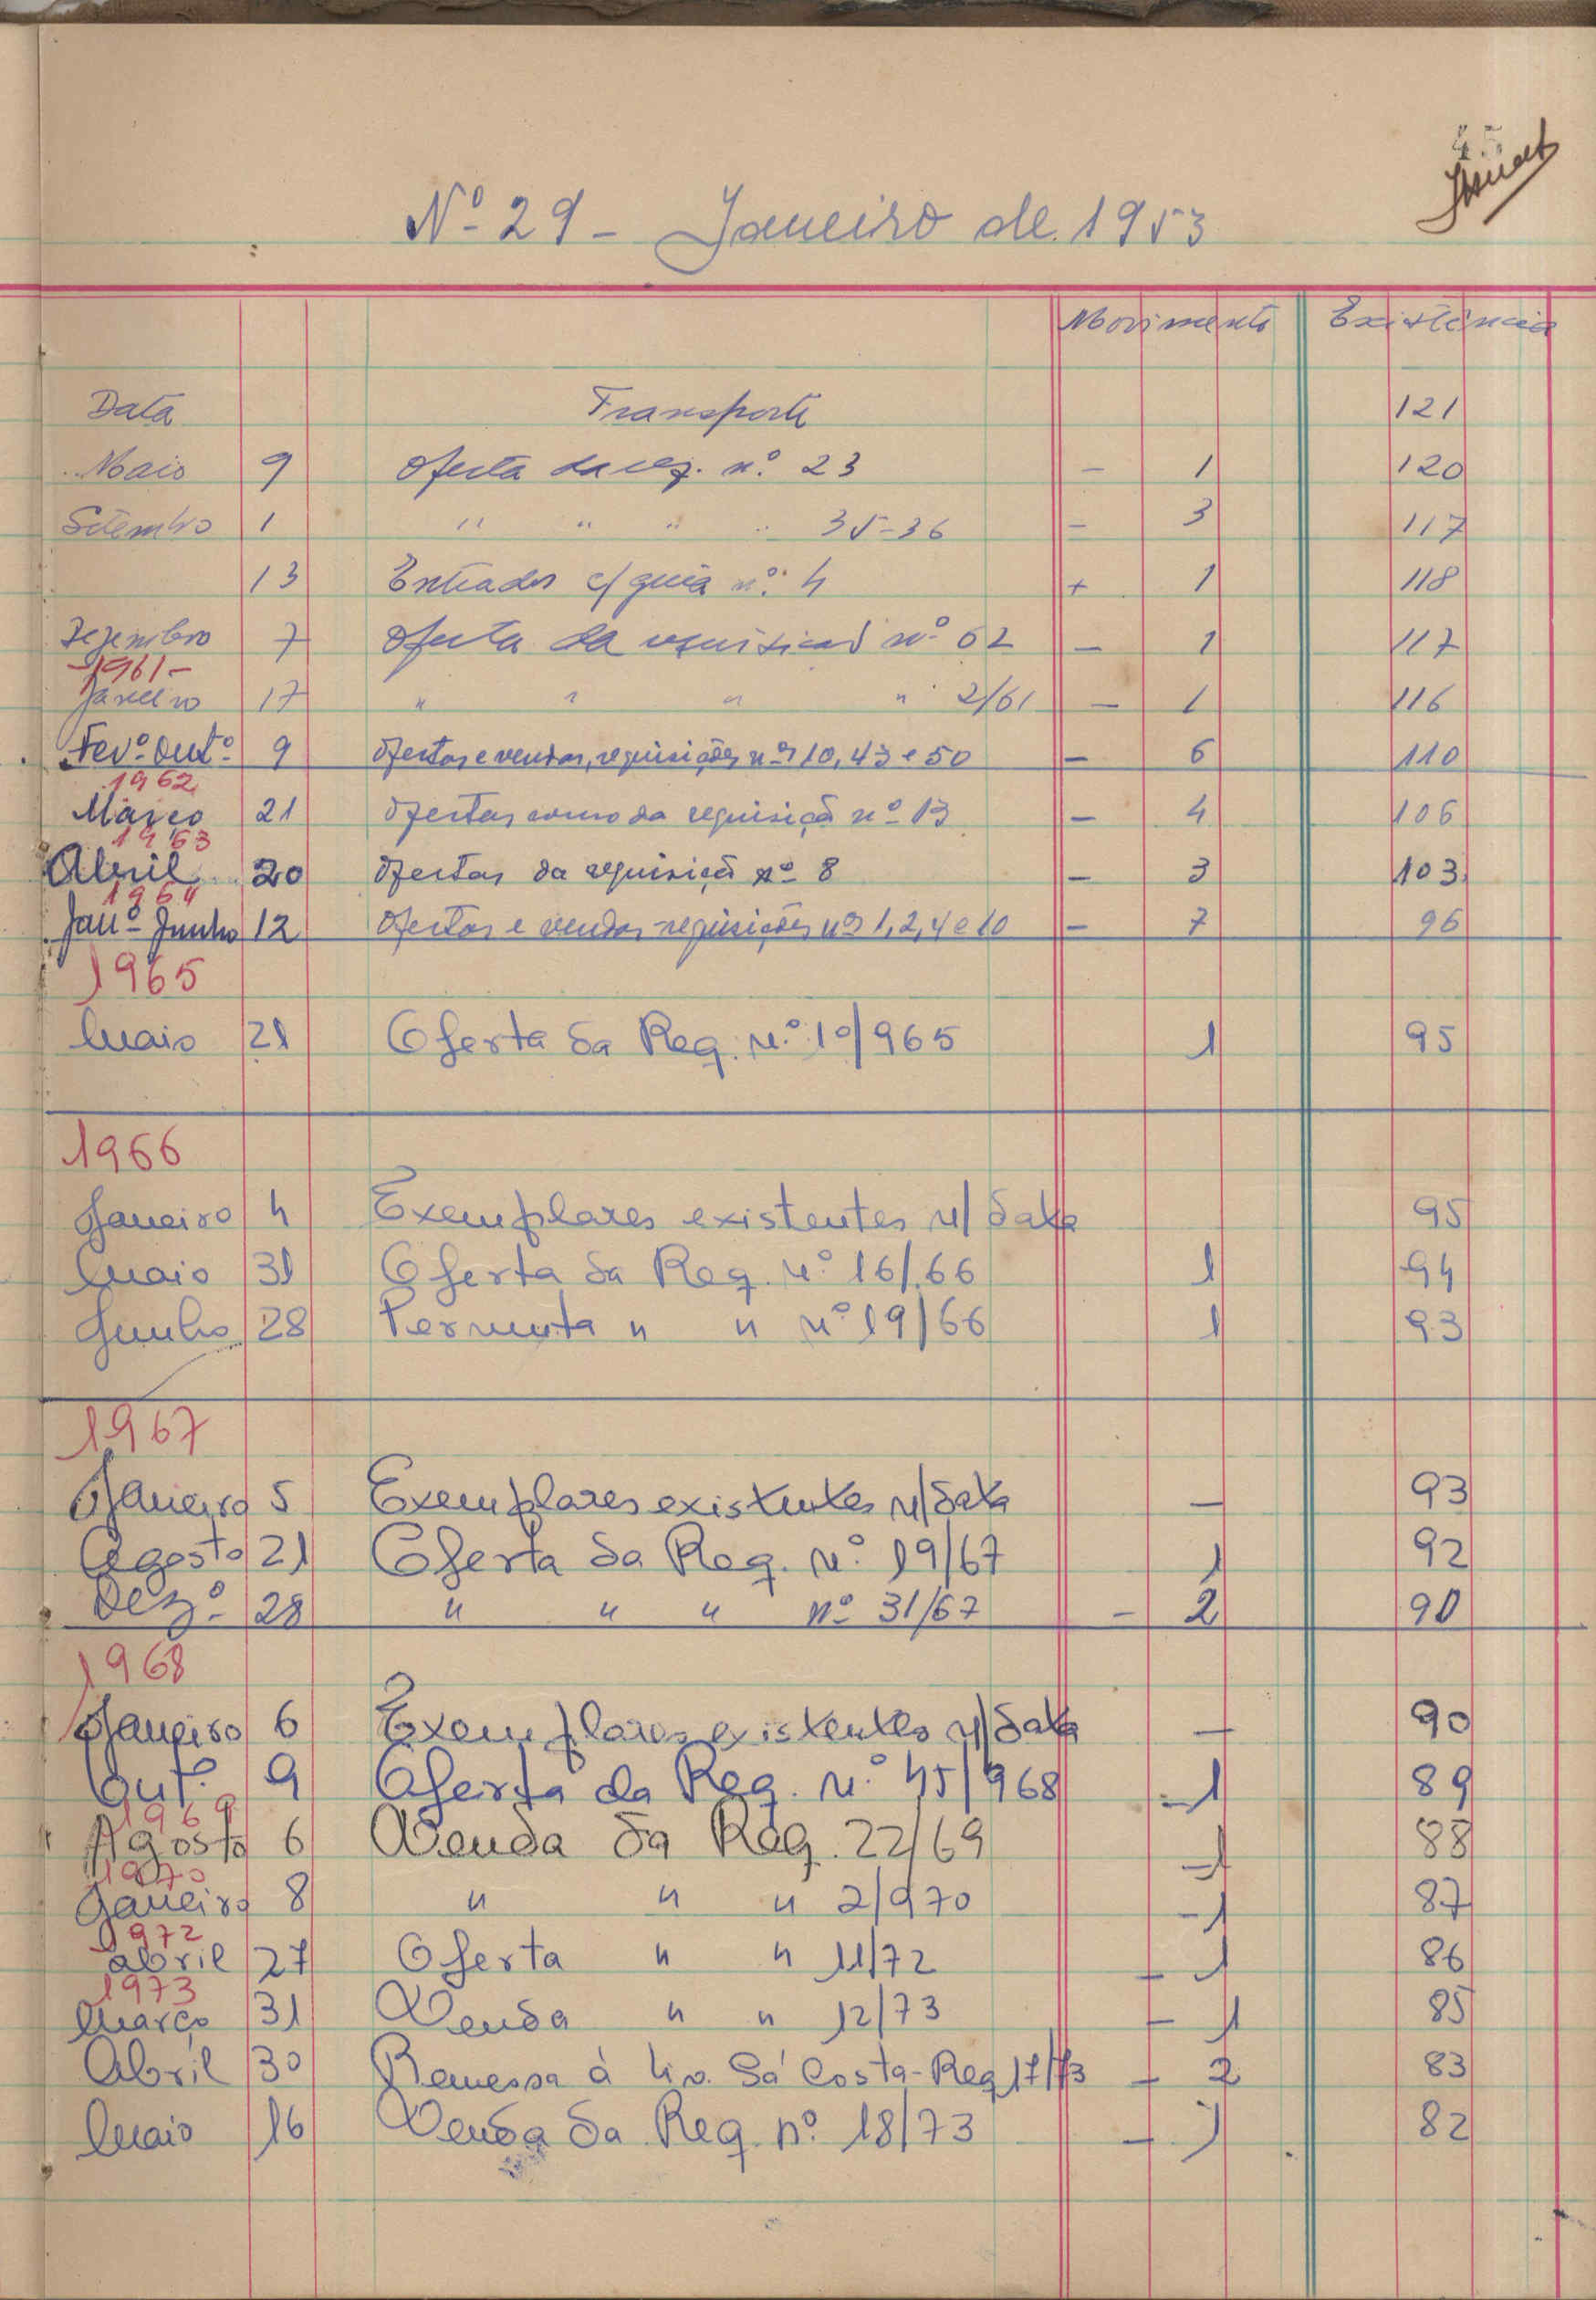 45
Nº 29 - Janeiro de 1953
Movimento Existência
Data Transporte 121
Maio 9 Oferta da req. nº 23 - 1 120
Setembro 1 " " " " 35-36 - 3 117
13 Entrados c/ guia nº 4 + 1 118
Dezembro 7 Oferta da requisição nº 62 - 1 117
-1961-
Janeiro 17 " " " " 2/61 - 1 116
Fevº Outº 9 Ofertas e vendas, requisições nºs 10, 43 e 50 - 6 110
1962
Março 21 Ofertas como da requisição nº 13 - 4 106
1963
Abril 20 Ofertas da requisição nº 8 - 3 103
1964
Janº Junho 12 Ofertas e vendas - requisições nºs 1, 2, 4 e 10 - 7 96
1965
Maio 21 Oferta da Req. nº 10/965 1 95
1966
Janeiro 4 Exemplares existentes n/ data 95
Maio 31 Oferta da Req. nº 16/66 1 94
Junho 28 Permuta " " nº 19/66 1 93
1967
Janeiro 5 Exemplares existentes n/ data - 93
Agosto 21 Oferta da Req. nº 19/67 1 92
Dezº 28 " " " nº 31/67 - 2 90
1968
Janeiro 6 Exemplares existentes n/ data - 90
Outº 9 Oferta da Req. nº 45/968 - 1 89
1969
Agosto 6 Venda da Req. 22/69 - 1 88
1970
Janeiro 8 " " " 2/970 - 1 87
1972
abril 27 Oferta " " 11/72 - 1 86
1973
Março 31 Venda " " 12/73 - 1 85
Abril 30 Remessa à Liv. Sá Costa - Req 17/73 - 2 83
Maio 16 Venda da Req. nº 18/73 - 1 82